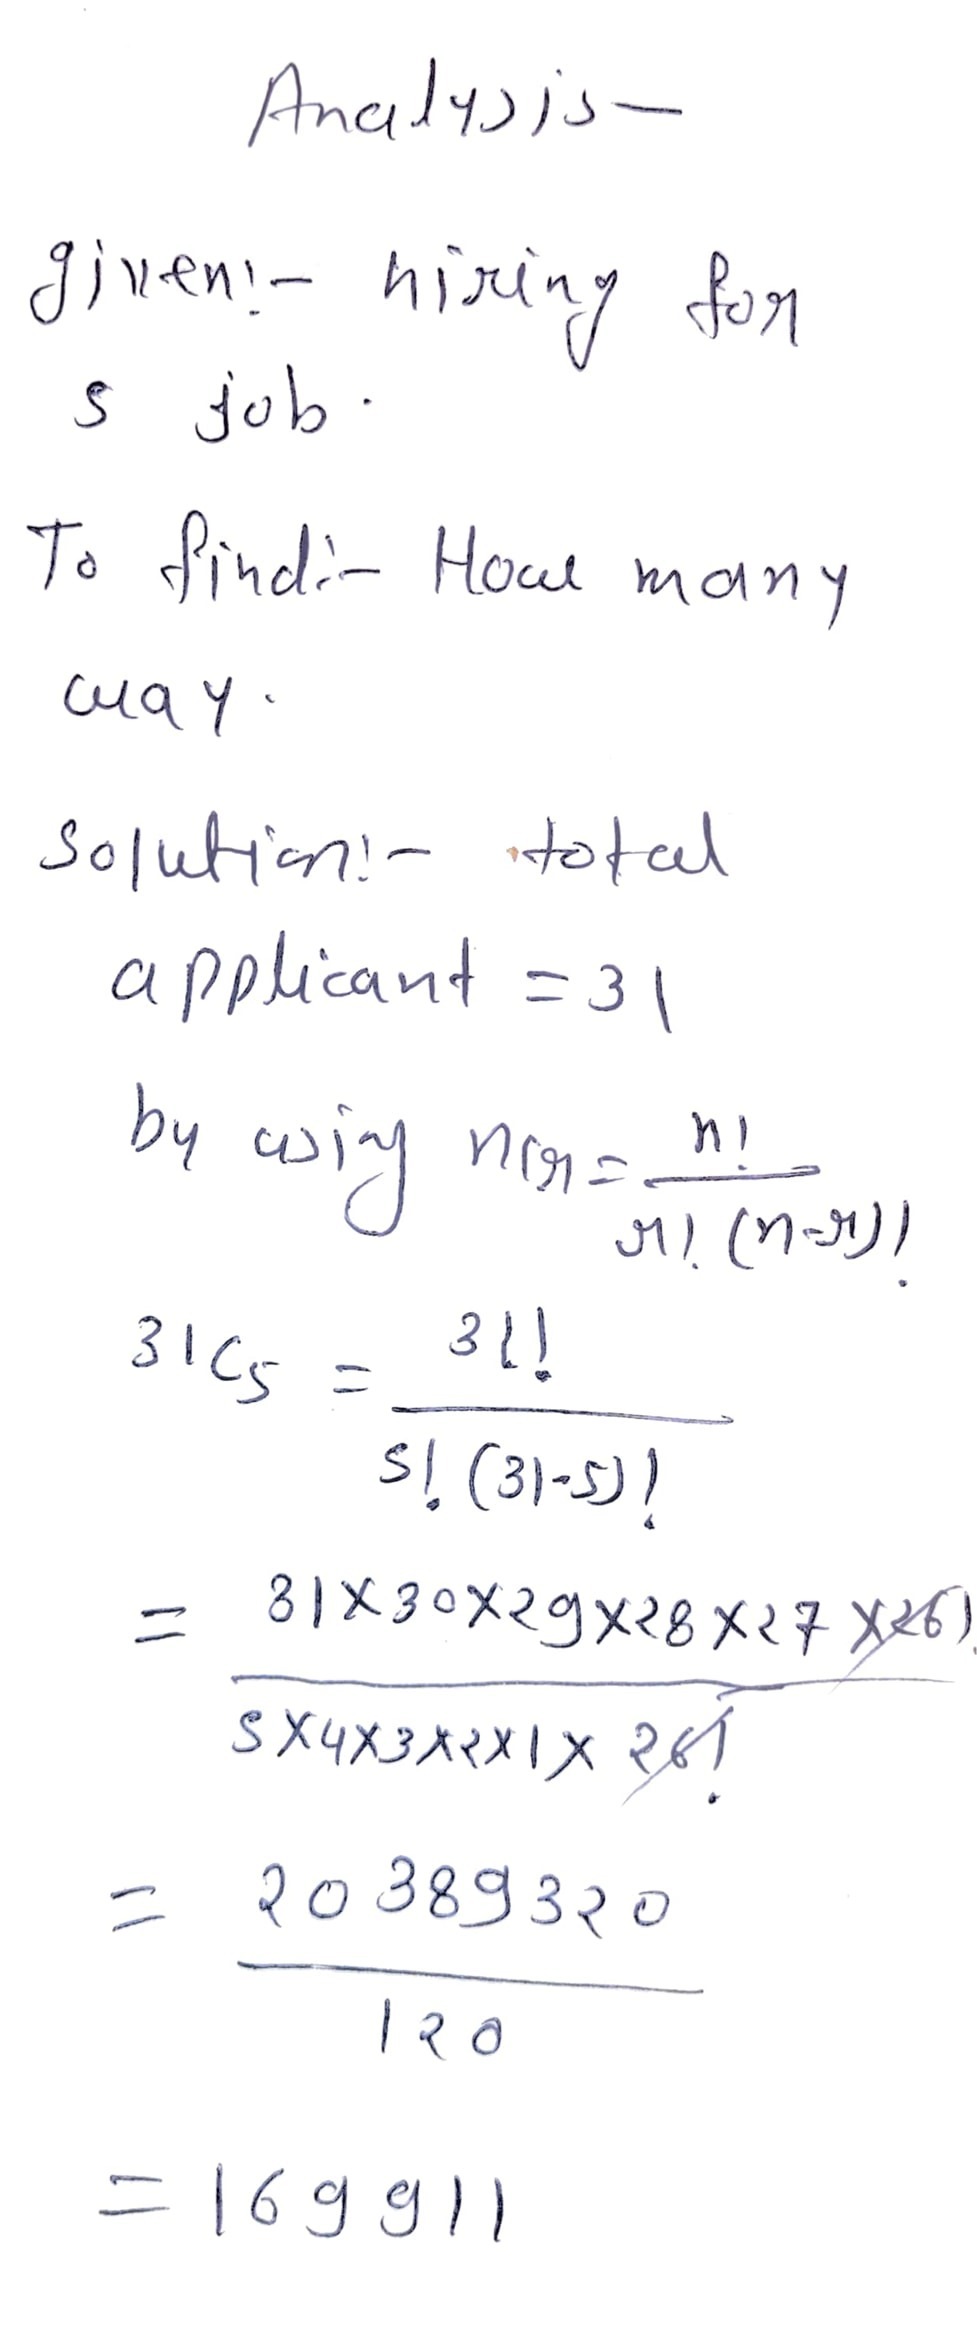 Analysis-
given:- hiring for
5 job.
To find:- How many
way.
Solution:- total
applicant = 31
by using nCr = n! / r! (n-r)!
31C5 = 31! / 5! (31-5)!
= 31×30×29×28×27×26! / 5×4×3×2×1×26!
= 20389320 / 120
= 169911